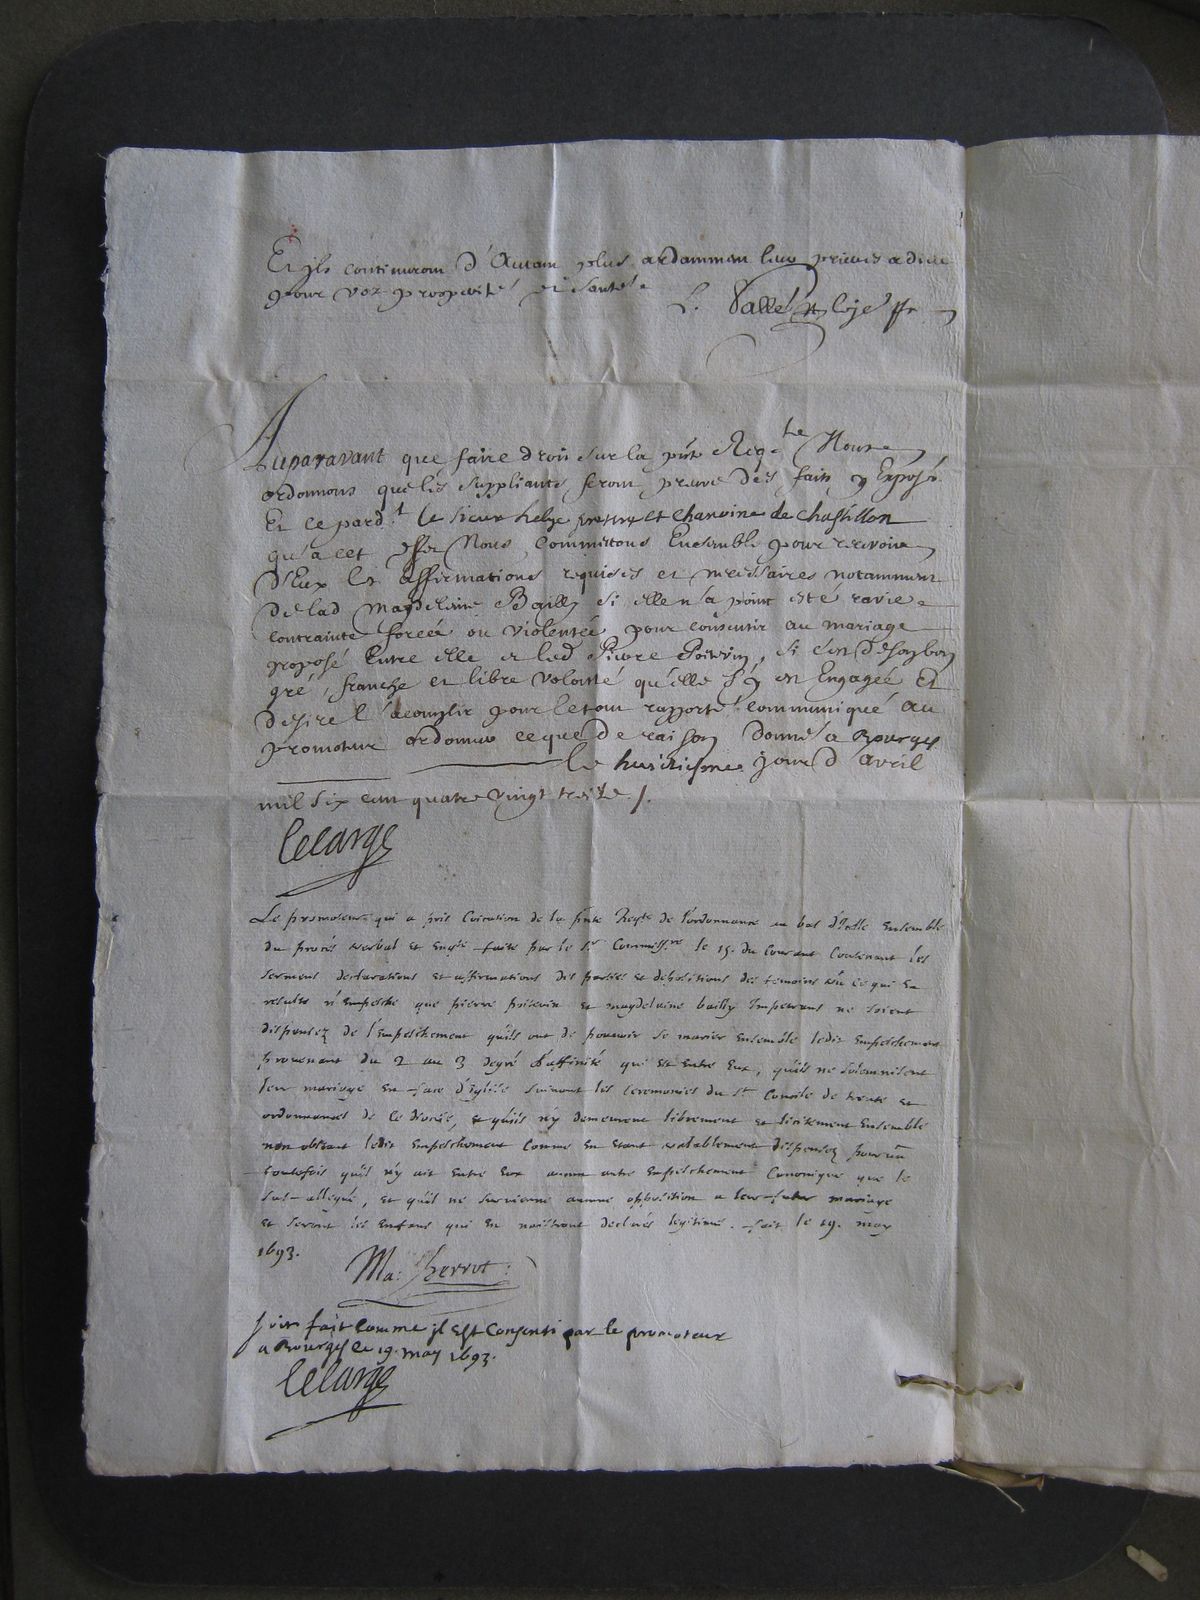 Et ils continuront d'Autant plus ardamment leurs prieres a dieu
pour voz prosperités et santés
Auparavant que faire droit sur la pñte Reqte Nous
ordonnons que les suppliants feront preuve des faits y Exposés
Et ce pard.t le sieur helye et chanoine de chastillon
qu'a cet effet Nous Commettons Ensemble pour recevoir
d'Eux les affirmations requises et necessaires notamment
de lad Magdeleine Bailly si elle n'a point esté ravie
contrainte forcée ou violentée pour consentir au mariage
proposé Entre elle et led Pierre Poitevin, si c'est de son bon
gré, franche et libre volonté qu'elle s'y est Engagée Et
desire l'acomplir pour le tout rapporté communiqué au
promoteur ordonner ce que de raison donné a Bourges
le huictiesme jour d'avril
mil six cent quatre vingt treize /.
lelarge
Le promoteur qui a pris Coication de la pñte Reqte de l'ordonnance au bas d'Icelle Ensemble
du procés verbal et Enqte faite par le Sr Commissre le 15. du Courant Contenant les
serment declarations et affirmations des parties et depositions des temoins veu ce qui en
resulte n'Empesche que pierre poitevin et magdelaine bailly Impetrans ne soient
dispensez de l'Empeschement qu'ils ont de pouvoir se marier Ensemble ledit Empeschement
provenant du 2 au 3 degré d'affinité qui est Entre Eux, qu'ils ne solemnisent
leur mariage En face d'Eglise suivant les Ceremonies du St Concile de trente et
ordonnances de Ce diocese, et qu'ils n'y demeurent librement et licitement Ensemble
non obstant ledit Empeschement Comme En estant valablement dispensez pourveu
toutefois qu'il n'y ait Entre Eux aucun autre Empeschement Canonique que le
sus-allegué, et qu'il ne survienne aucune opposition a leur futur mariage
et seront les Enfans qui En naistront declarés legitimes. fait le 19. may
1693.
Ma: herrot:
soit fait Comme il est Consenti par le promoteur
a Bourges le 19. may 1693.
lelarge